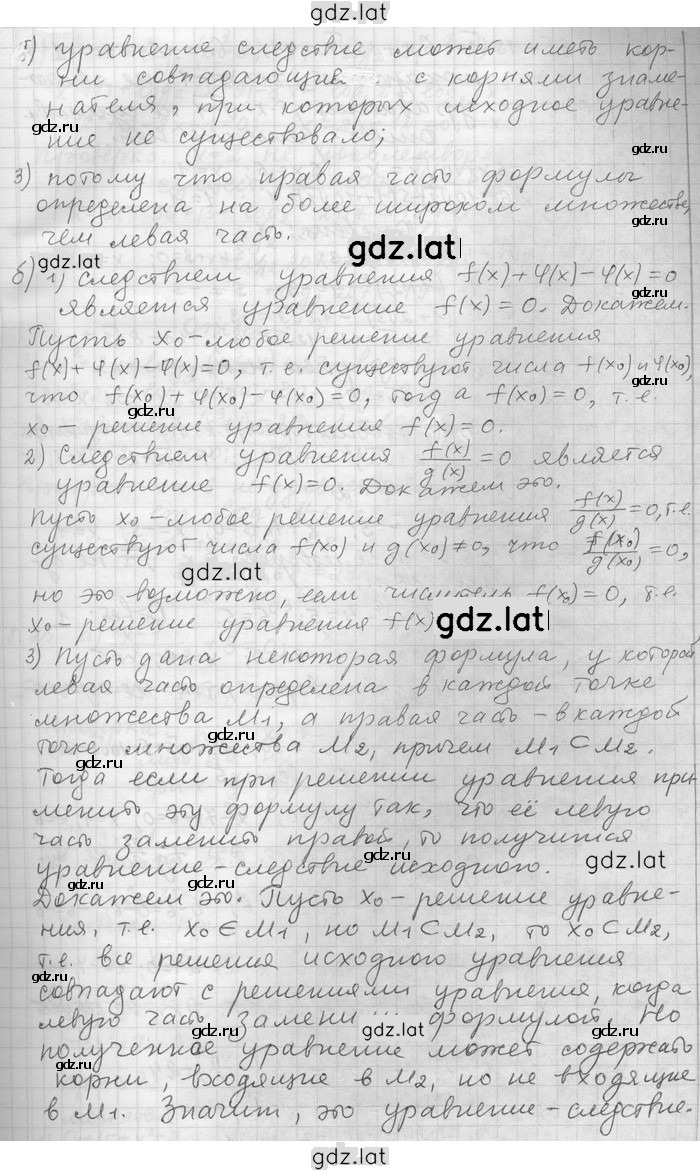 gdz.lat
2) уравнение следствие может иметь кор-
ни совпадающие с корнями знаме-
нателя, при которых исходное уравне-
gdz.lat
gdz.lat
ние не существовало;
3) потому что правая часть формулы
определена на более широком множестве,
gdz.lat
чем левая часть.
gdz.lat
gdz.lat
б) 1) следствием уравнения f(x)+φ(x)-φ(x)=0
является уравнение f(x)=0. Докажем.
Пусть x₀-любое решение уравнения
gdz.lat
f(x)+φ(x)-φ(x)=0, т.е. существуют числа f(x₀) и φ(x₀),
gdz.lat
что f(x₀)+φ(x₀)-φ(x₀)=0, тогда f(x₀)=0, т.е.
gdz.lat
x₀-решение уравнения f(x)=0.
2) Следствием уравнения f(x)/g(x)=0 является
gdz.lat
уравнение f(x)=0. Докажем это.
Пусть x₀-любое решение уравнения f(x)/g(x)=0, т.е.
gdz.lat
существуют числа f(x₀) и g(x₀)≠0, что f(x₀)/g(x₀)=0,
gdz.lat
но это возможно, если числитель f(x₀)=0, т.е.
x₀-решение уравнения f(x)
gdz.lat
3) Пусть дана некоторая формула, у которой
gdz.lat
левая часть определена в каждой точке
множества M1, а правая часть-в каждой
gdz.lat
точке множества M2, причем M1⊂M2.
Тогда если при решении уравнения при-
gdz.lat
менить эту формулу так, что её левую
часть заменить правой, то получится
gdz.lat
уравнение-следствие исходного.
gdz.lat
gdz.lat
Докажем это. Пусть x₀-решение уравне-
ния, т.е. x₀∈M1, но M1⊂M2, то x₀⊂M2,
gdz.lat
т.е. все решения исходного уравнения
gdz.lat
совпадают с решениями уравнения, когда
левую часть замени формулой. Но
gdz.lat
gdz.lat
полученное уравнение может содержать
корни, входящие в M2, но не входящие
gdz.lat
gdz.lat
в M1. Значит, это уравнение-следствие.
gdz.lat